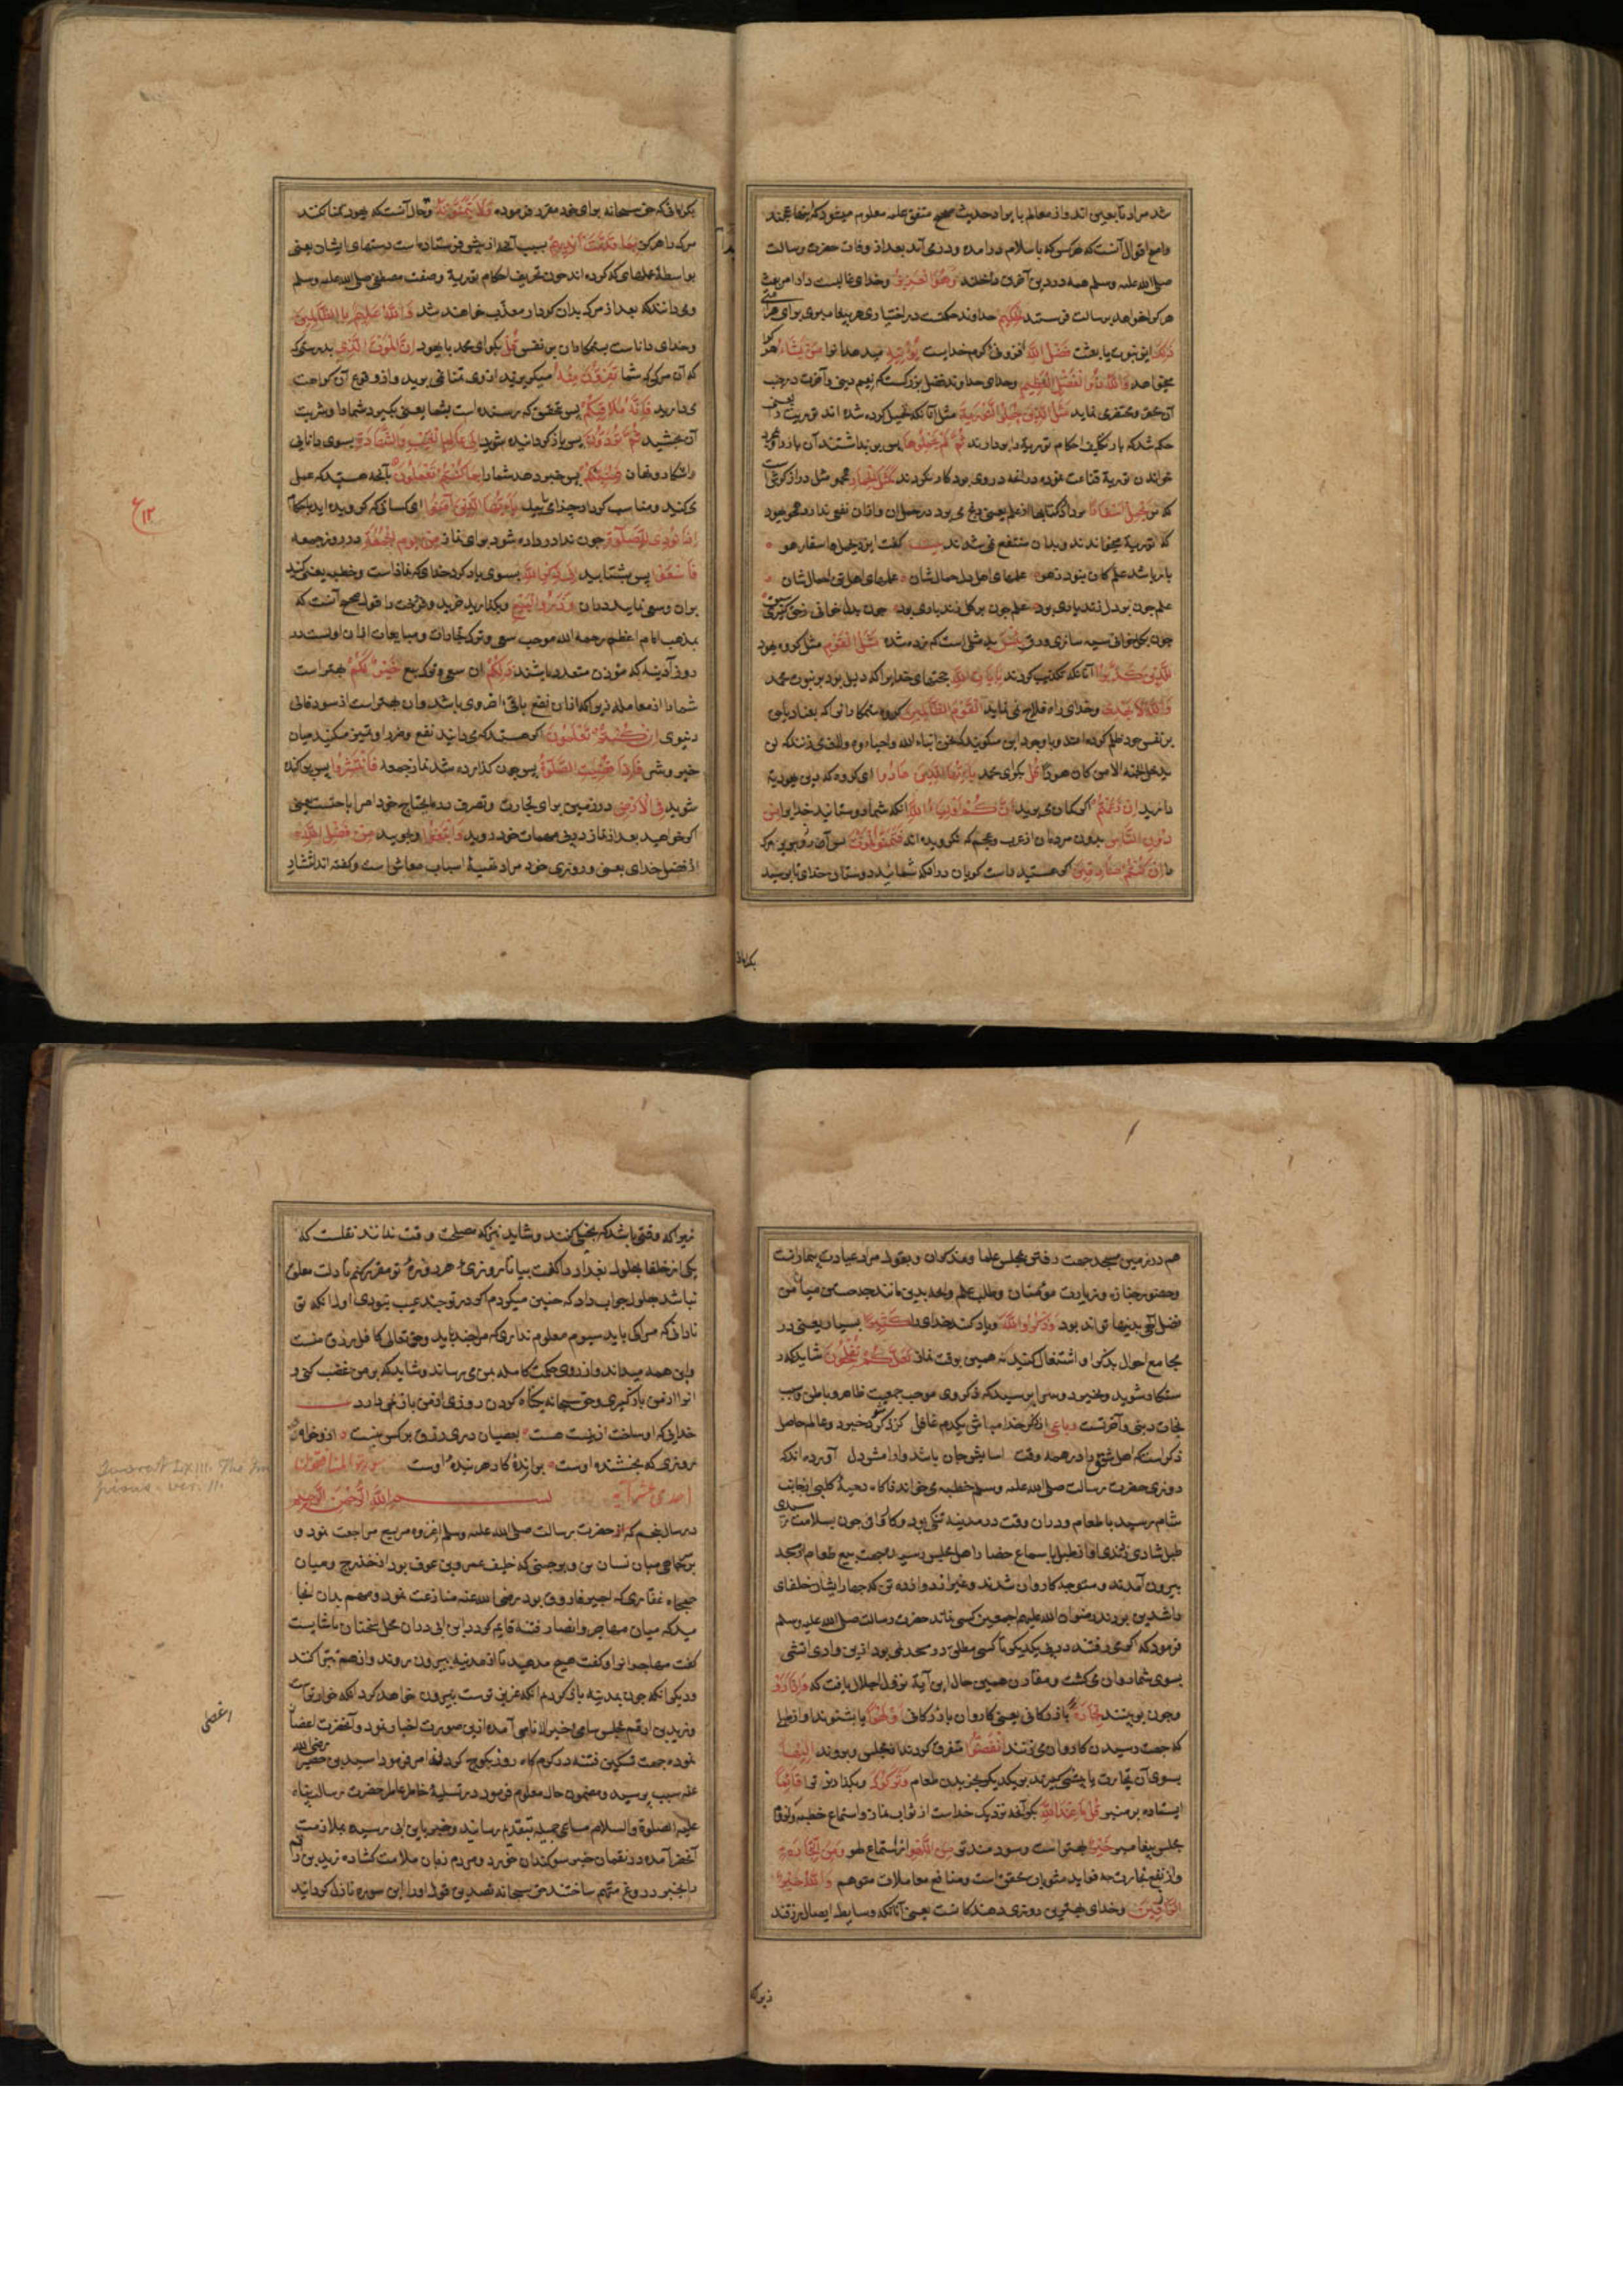 شد مراد تابعین اند و از معالم با یراد حدیث صحیح متفق علیه معلوم میشود که اینها عجمند
و اصح اقوال آنست که هر کس که باسلام درامده و در می آید بعد از وفات حضرت رسالت
صلی الله علیه وسلم همه در دین آخرین داخلند وَهُوَ الْعَزِيزُ و خدای غالبست
هر کرا خواهد برسالت فرستد الْحَكِيمُ خداوند حکمت در اختیار
ذَلِكَ این نبوت یا بعثت فَضْلُ اللَّهِ افزونی کرم خدایست يُؤْتِيهِ میدهد انرا مَنْ يَشَاءُ هر کرا
میخواهد وَاللَّهُ ذُو الْفَضْلِ الْعَظِيمِ و خدای خداوند فضل بزرکست که نعیم دنیی و آخرت در جنب
آن محقر نماید مَثَلُ الَّذِينَ حُمِّلُوا التَّوْرَاةَ مثل آنانکه تحمیل کرده شده اند توریت را یعنی
حکم شد که بار تکلیف احکام توریة را بردارند ثُمَّ لَمْ يَحْمِلُوهَا پس بر نداشتند آن بار را
خواندن توریة قناعت نموده كَمَثَلِ الْحِمَارِ همچو مثل دراز کوش است
که توریة میخوانند و بدان منتفع نمی شوند بیت گفت ایزد یحمل اسفاره هو
بار باشد علم کان نبود ز هو علمهای اهل دل حمالشان علمهای اهل تن احمالشان
علم چون بر دل زند یاری بود علم چون بر کل زند باری بود چون بدل خوانی
بِئْسَ بد مثلی است که زده شده مَثَلُ الْقَوْمِ مثل کروه یهود
الَّذِينَ كَذَّبُوا آنانکه تکذیب کردند بِآيَاتِ اللَّهِ حجتهای خدایرا که دلیل بود بر نبوت محمد
وَاللَّهُ لَا يَهْدِي و خدای راه فلاح نمی نماید الْقَوْمَ الظَّالِمِينَ کروه ستمکارانرا که بعناد
بر نفس خود ظلم کرده اند و با وجود این میکویند که نحن ابناء الله و احباءه
قُلْ بکو ای محمد يَا أَيُّهَا الَّذِينَ هَادُوا ای کروه که دین یهودیة
دارید إِنْ زَعَمْتُمْ اکر کمان می برید أَنَّكُمْ أَوْلِيَاءُ لِلَّهِ انکه شما دوستانید خدایرا مِنْ
دُونِ النَّاسِ بدون مردمان از عرب و عجم که نکرویده اند فَتَمَنَّوُا الْمَوْتَ پس آرزو برید مرک
را إِنْ كُنْتُمْ صَادِقِينَ اکر هستید راست کویان درانکه شمائید دوستان خدای تا برسید
بکراماتی
بکراماتی که حق سبحانه برای خود مقرر فرموده وَلَا يَتَمَنَّوْنَهُ و حال آنست که یهود تمنا نکنند
مرک را هرکز بِمَا قَدَّمَتْ أَيْدِيهِمْ بسبب آنچه از پیش فرستاده است دستهای ایشان یعنی
بواسطهٔ عملهای که کرده اند چون تحریف احکام توریة و صفت مصطفی صلی الله علیه وسلم
و می دانند که بعد از مرک بدان کردار معذب خواهند شد وَاللَّهُ عَلِيمٌ بِالظَّالِمِينَ
و خدای داناست بستمکاران بر نفس قُلْ بکو ای محمد با یهود إِنَّ الْمَوْتَ الَّذِي بدرستی که
که آن مرکی که شما تَفِرُّونَ مِنْهُ میکریزید ازوی تمنا نمی برید و از وقوع آن کراهت
می دارید فَإِنَّهُ مُلَاقِيكُمْ پس بتحقیق که رسنده است بشما یعنی بکیرد شما را و شربت
آن بچشید ثُمَّ تُرَدُّونَ پس باز کردانیده شوید إِلَى عَالِمِ الْغَيْبِ وَالشَّهَادَةِ بسوی دانای
آشکارا و نهان فَيُنَبِّئُكُمْ پس خبر دهد شما را بِمَا كُنْتُمْ تَعْمَلُونَ بآنچه هستید که عمل
می کنید و مناسب کردار جزای يَا أَيُّهَا الَّذِينَ آمَنُوا ای کسانی که کرویده اید
إِذَا نُودِيَ لِلصَّلَاةِ چون ندا در داده شود برای نماز مِنْ يَوْمِ الْجُمُعَةِ در روز جمعه
فَاسْعَوْا پس بشتابید إِلَى ذِكْرِ اللَّهِ بسوی یاد کرد خدای که نماز است و خطبه
بران و سعی نمایید دران وَذَرُوا الْبَيْعَ و بکذارید خرید و فروخت را قول صحیح آنست که
بمذهب امام اعظم رحمه الله موجب سعی و ترک تجارات و مبایعات اذان اولست در
روز آدینه که مؤذن متعدد باشند ذَلِكُمْ ان سعی و ترک بیع خَيْرٌ لَكُمْ بهتر است
شما را از معامله زیرا که ازان نفع باقی اخروی باشد و ان بهتر است از سود فانی
دنیوی إِنْ كُنْتُمْ تَعْلَمُونَ اکر هستید که می دانید نفع و ضرر او تمیز میکنید میان
خیر و شر فَإِذَا قُضِيَتِ الصَّلَاةُ پس چون کذارده شد نماز جمعه فَانْتَشِرُوا پس پراکنده
شوید فِي الْأَرْضِ در زمین برای تجارت و تصرف در مایحتاج خود امر اباحتست یعنی
اکر خواهید بعد از نماز در پی مهمات خود روید وَابْتَغُوا و بجویید مِنْ فَضْلِ اللَّهِ
از فضل خدای یعنی و روزی خود مراد تهیهٔ اسباب معاش است و کفته اند انتشار
ع ۱۲
هم در زمین مسجد جهت رفتن بمجلس علما و مذکران و بقولی مراد عیادت بیمارانست
و حضور جنازه و زیارت مؤمنان و طلب علم
فضل الهی بدینها تواند بود وَاذْكُرُوا اللَّهَ و یاد کنید خدای را كَثِيرًا بسیار یعنی در
مجامع احوال بذکر او اشتغال کنید نه همین بوقت نماز لَعَلَّكُمْ تُفْلِحُونَ شاید که
رستکار شوید و بخیر دو سرا برسید که ذکر وی موجب جمعیت ظاهر و باطن و سبب
نجات دنیی و آخرتست رباعی از ذکر خدا مباش یکدم غافل کز ذکر بود خیر دو عالم حاصل
ذکر است که اهل شوق را در همه وقت آسایش جان باشد و آرامش دل آورده اند که
روزی حضرت رسالت صلی الله علیه وسلم خطبه می خواند ناکاه دحیهٔ کلبی از جانب
شام رسید با طعام و دران وقت در مدینه تنکی بود و کاروان چون بسلامت رسیدی
طبل شادی زدندی آواز طبل باسماع حضار اهل مجلس رسید بجهت بیع طعام از مسجد
بیرون آمدند و متوجه کاروان شدند و غیر از دوازده تن که چهار ایشان خلفای
راشدین بودند رضوان الله علیهم اجمعین کسی نماند حضرت رسالت صلی الله علیه وسلم
فرمود که اکر می رفتند در پی یکدیکر تا کسی مطلق در مسجد نمی بود ازین وادی آتشی
بسوی شما روان می کشت و مقارن همین حال این آیة نزول اجلال یافت که وَإِذَا رَأَوْا
و چون ببینند تِجَارَةً بازرکانی یعنی کاروان بازرکانی أَوْ لَهْوًا یا بشنوند آواز طبل
که جهت رسیدن کاروان می زنند انْفَضُّوا متفرق کردند از مجلس و بروند إِلَيْهَا
بسوی آن تجارت یا پیشی کیرند بر یکدیکر بخریدن طعام وَتَرَكُوكَ و بکذارند ترا قَائِمًا
ایستاده بر منبر قُلْ مَا عِنْدَ اللَّهِ بکو آنچه نزدیک خداست از ثواب نماز و استماع خطبه
مجلس پیغامبر خَيْرٌ بهتر است و سودمندتر مِنَ اللَّهْوِ از استماع لهو وَمِنَ التِّجَارَةِ
و از نفع تجارت چه فواید مثوبات محقق است و منافع معاملات متوهم وَاللَّهُ خَيْرُ
الرَّازِقِينَ و خدای بهترین روزی دهندکانست یعنی آنانکه وسایط ایصال رزقند
زیراکه
زیراکه وقتی باشد که بخیلی کنند و شاید نیز که مصلحت وقت ندانند نقلست که
یکی از خلفا بهلول بغداد را کفت بیا تا روزی هر روزهٔ تو مقرر کنم تا دلت معلق
نباشد بهلول جواب داد که چنین میکردم اکر درو چند عیب نبودی اول انکه تو
ندانی که مرا کی باید سیوم معلوم نداری که مرا چند باید و حق تعالی کافل رزق منست
و این همه میداند و از روی حکمت کامله بمن می رساند و شاید که بر من غضب کنی و
آنرا از من باز کیری و حق سبحانه بکناه کردن روزی از من باز نمی دارد بیت
خدایی که او ساخت از نیست هست بعصیان در رزق بر کس نبست ازو خواه
روزی که بخشنده اوست برآرندهٔ کار هر بنده اوست سورة المنافقون
احدی عشر آیه بسم الله الرحمن الرحیم
در سال پنجم که آن حضرت رسالت صلی الله علیه وسلم از غزوه مریسیع مراجعت نمود و
بود از خزرج و میان
جهجاه غفاری که اجیر فاروق بود رضی الله عنه منازعت نمود و مهم بدان انجا
مید که میان مهاجر و انصار فتنه قایم کردد ابن ابی دران محل سخنان ناشایست
کفت مهاجرانرا و کفت هیچ مدهید تا از مدینه بیرون روند و از هم
و دیکر انکه چون بمدینه باز کردم آنکه عزیز ترست بیرون خواهد کرد انکه خوارترست
و زید بن ارقم بمجلس سامی خیر الانامی آمده ازین صورت اخبار نمود و آنحضرت اغضا
نموده جهت تسکین فتنه در کرم کاه روز بکوچ کردن امر فرمود اسید بن حضیر رضی الله
عنه سبب پرسید و مضمون حال معلوم فرمود در تسلیهٔ خاطر عاطر حضرت رسالت پناه
علیه الصلوة والسلام مساعی جمیله بتقدیم رسانید و خبر باین ابی رسید بملازمت
آنحضرت آمده در نقمان خبر سوکندان خورد و مردم زبان ملامت کشاده زید بن ارقم
را بخبر دروغ متهم ساختند حق سبحانه تصدیق قول او را این سوره نازل کردانید
Soorat LXIII. The Im
pious. ver. 11.